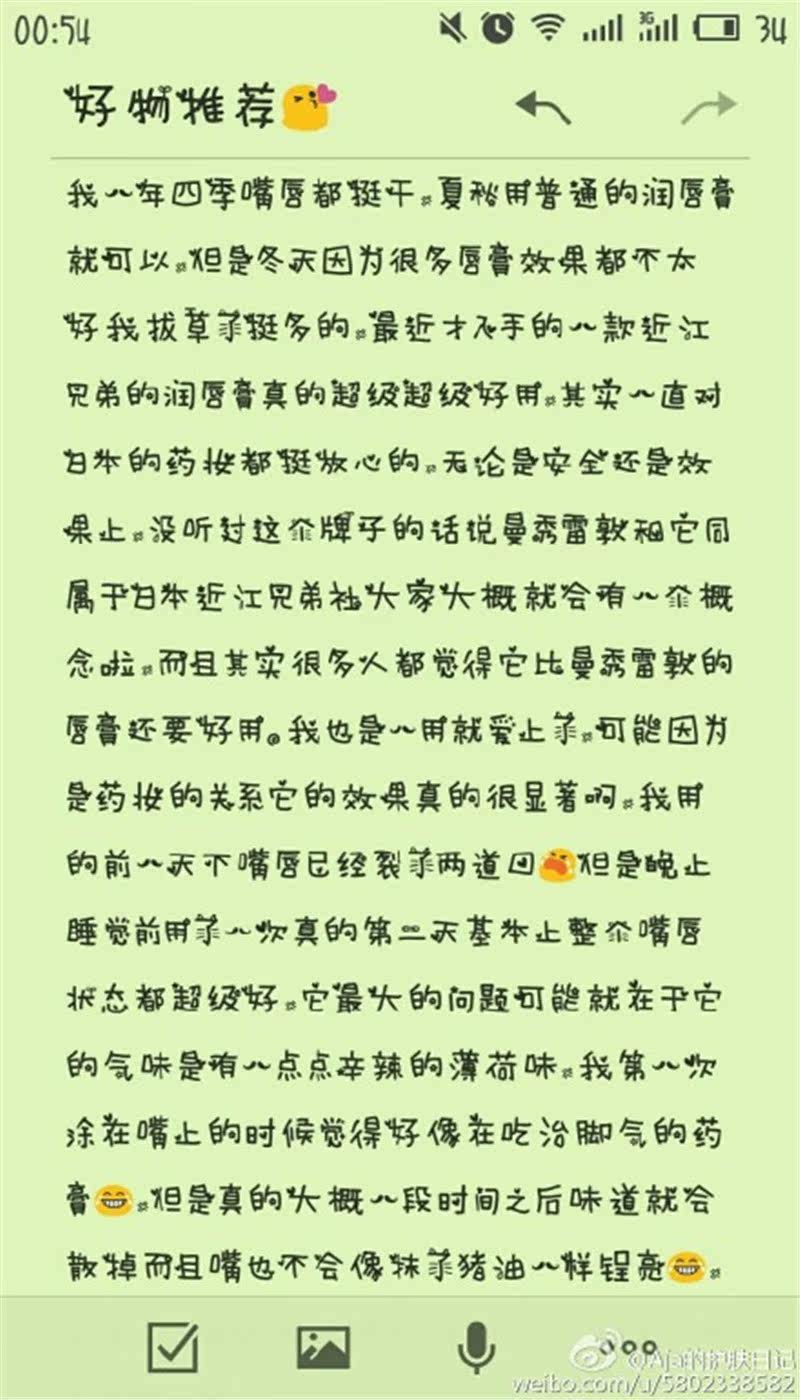 00:54 3G 34
好物推荐😘
我一年四季嘴唇都挺干。夏秋用普通的润唇膏
就可以。但是冬天因为很多唇膏效果都不太
好我拔草了挺多的。最近才入手的一款近江
兄弟的润唇膏真的超级超级好用。其实一直对
日本的药妆都挺放心的。无论是安全还是效
果上。没听过这个牌子的话说曼秀雷敦和它同
属于日本近江兄弟社大家大概就会有一个概
念啦。而且其实很多人都觉得它比曼秀雷敦的
唇膏还要好用。我也是一用就爱上了。可能因为
是药妆的关系它的效果真的很显著啊。我用
的前一天下嘴唇已经裂了两道口😭但是晚上
睡觉前用了一次真的第二天基本上整个嘴唇
状态都超级好。它最大的问题可能就在于它
的气味是有一点点辛辣的薄荷味。我第一次
涂在嘴上的时候觉得好像在吃治脚气的药
膏😂。但是真的大概一段时间之后味道就会
散掉而且嘴也不会像抹了猪油一样锃亮😂。
@Aja的护肤日记
weibo.com/u/5802338582